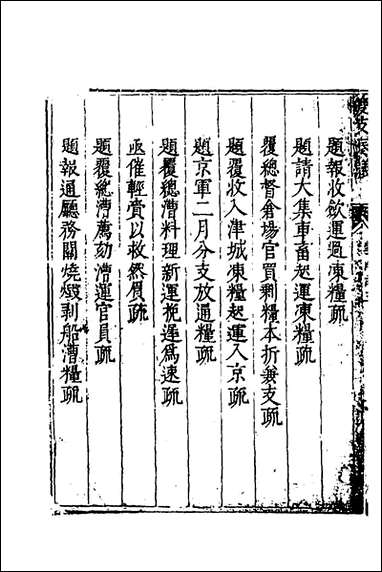 題報收飲運過凍糧疏
題請大集車畜起運凍糧疏
覆總督倉場官買剩糧本折兼支疏
題覆收入津城凍糧起運入京疏
題京軍二月分支放通糧疏
題覆總漕料理新運挽遲為速疏
亟催輕賫以救然眉疏
題覆總漕薦劾漕運官員疏
題報通廳務關燒燬剝船漕糧疏